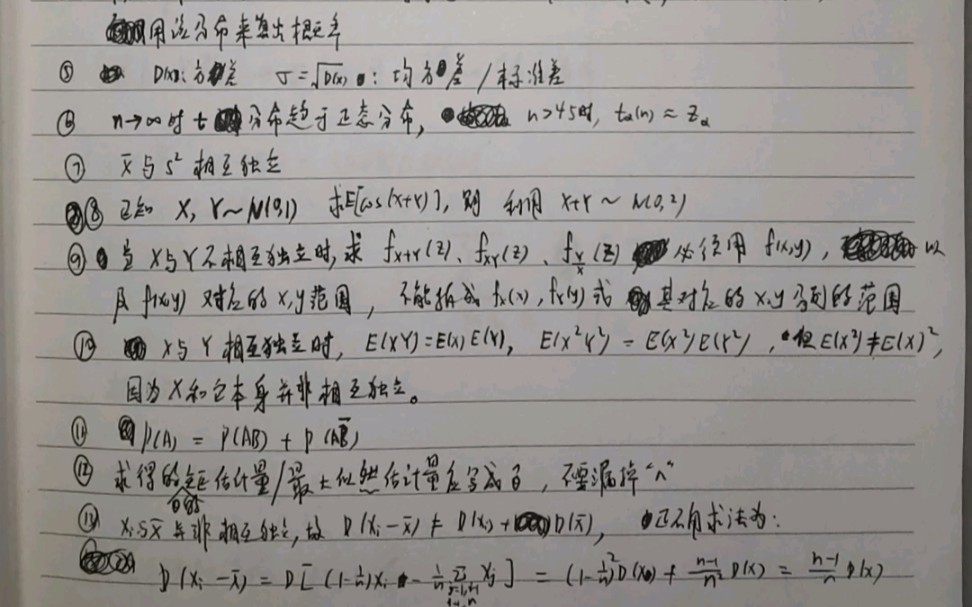 用该分布来算出概率
⑤ D(x): 方差 σ=√D(x) : 均方差/标准差
⑥ n→∞时 t分布趋于正态分布, n>45时, tα(n)≈Zα
⑦ x̄与s²相互独立
⑧ 已知 X, Y~N(0,1) 求E[cos(x+Y)], 则 利用 X+Y~N(0,2)
⑨ 当X与Y不相互独立时, 求 f_{X+Y}(z)、f_{XY}(z)、f_{Y/X}(z) 必须用 f(x,y), 以
及 f(x,y) 对应的 x,y范围, 不能拆成 fx(x), fY(y) 或 其对应的x,y 的范围
⑩ X与Y相互独立时, E(XY)=E(x)E(Y), E(x²Y²)=E(x²)E(Y²), 但E(x²)≠E(x)²,
因为X和它本身并非相互独立。
⑪ P(A) = P(AB) + P(AB̄)
⑫ 求得的θ的矩估计量/最大似然估计量应写成θ̂, 不要漏掉“∧”
⑬ Xi与x̄并非相互独立, 故 D(Xi-x̄) ≠ D(Xi)+D(x̄), 正确求法为:
D(Xi-x̄) = D[(1-1/n)Xi - 1/n Σ Xj] = (1-1/n)²D(x) + (n-1)/n² D(x) = (n-1)/n D(x)